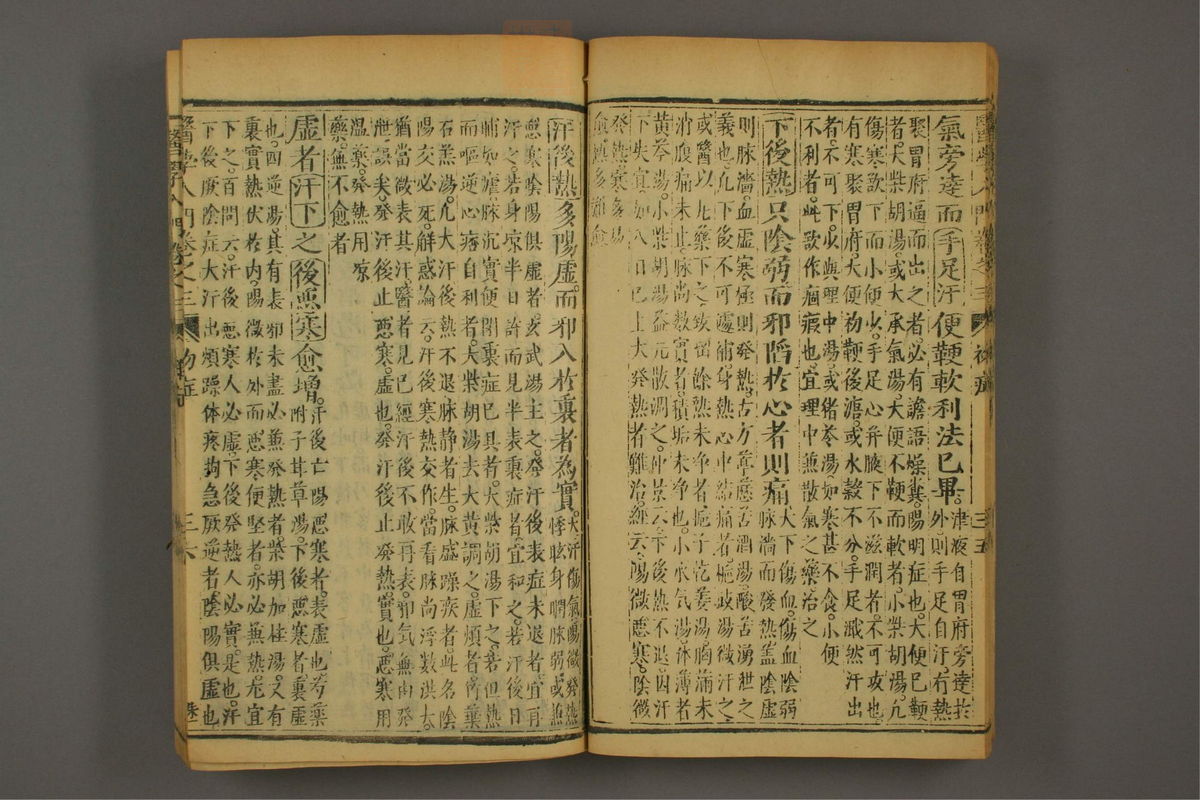 氣旁達而手足汗便鞕軟利法已畢津液自胃府旁達於外則手足自汗有熱
聚胃府逼而出之者必有譫語燥糞陽明症也大便已鞕
者大柴胡湯或大承氣湯大便不鞕而軟者小柴胡湯凡
傷寒欲下而小便少手足心并腋下不滋潤者不可攻也
有寒聚胃府大便初鞕後溏或水穀不分手足濈然汗出
者不可下少與理中湯或猪苓湯如寒甚不食小便
不利者此欲作痼瘕也宜理中兼散氣之藥治之
下後熱只陰弱而邪陷於心者則痛大下傷血傷血陰弱脉濇而發熱盖陰虛
則脉濇血虛寒極則發熱古方葶藶苦酒湯酸苦湧泄之
義也凡下後不可遽補身熱心中結痛者梔豉湯微汗之
或醫以丸藥下之致留餘熱未浄者梔子乾姜湯胸滿未
消腹痛未止脉尚數實者積垢未浄也小水氣湯体薄者
黄芩湯小柴胡湯益元散調之仲景云下後熱不退因汗
下失宜如八日已上大發熱者難治經云陽微惡寒陰微
發熱寒多易
愈熱多難愈
汗後熱多陽虛而邪入於裏者為實大汗傷氣陽微發熱悸眩身瞤脉弱或無
惡寒陰陽俱虛者玄武湯主之發汗後表症未退者宜再
汗之若身凉半日許而見半表裏症者宜和之若汗後日
晡如瘧脉沉實便閉裏症已具者大柴胡湯下之若但熱
而嘔逆心痞自利者大柴胡湯去大黄調之虛煩者竹葉
石羔湯凡大汗後熱不退脉静者生脉盛躁疾者此名陰
陽交必死解惑論云汗後寒熱交作當看脉尚浮數洪大
猶當微表其汗醫者見已經汗後不敢再表卻氣無由發
泄誤矣發汗後止惡寒虛也發汗後止發熱實也惡寒用
温藥發熱用凉
藥無不愈者
虛者汗下之後惡寒愈增汗後亡陽惡寒者表虛也芍藥附子甘草湯下後惡寒者裏虛
也四逆湯其有表邪未盡必兼發熱者柴胡加桂湯又有
裏實熱伏於内陽微於外而惡寒便堅者亦必兼熱尤宜
下之百問云汗後惡寒人必虛下後發熱人必實是也汗
下後厥陰症大汗出煩躁体疼拘急厥逆者陰陽俱虛也
醫學入門卷之三
傷寒
三六